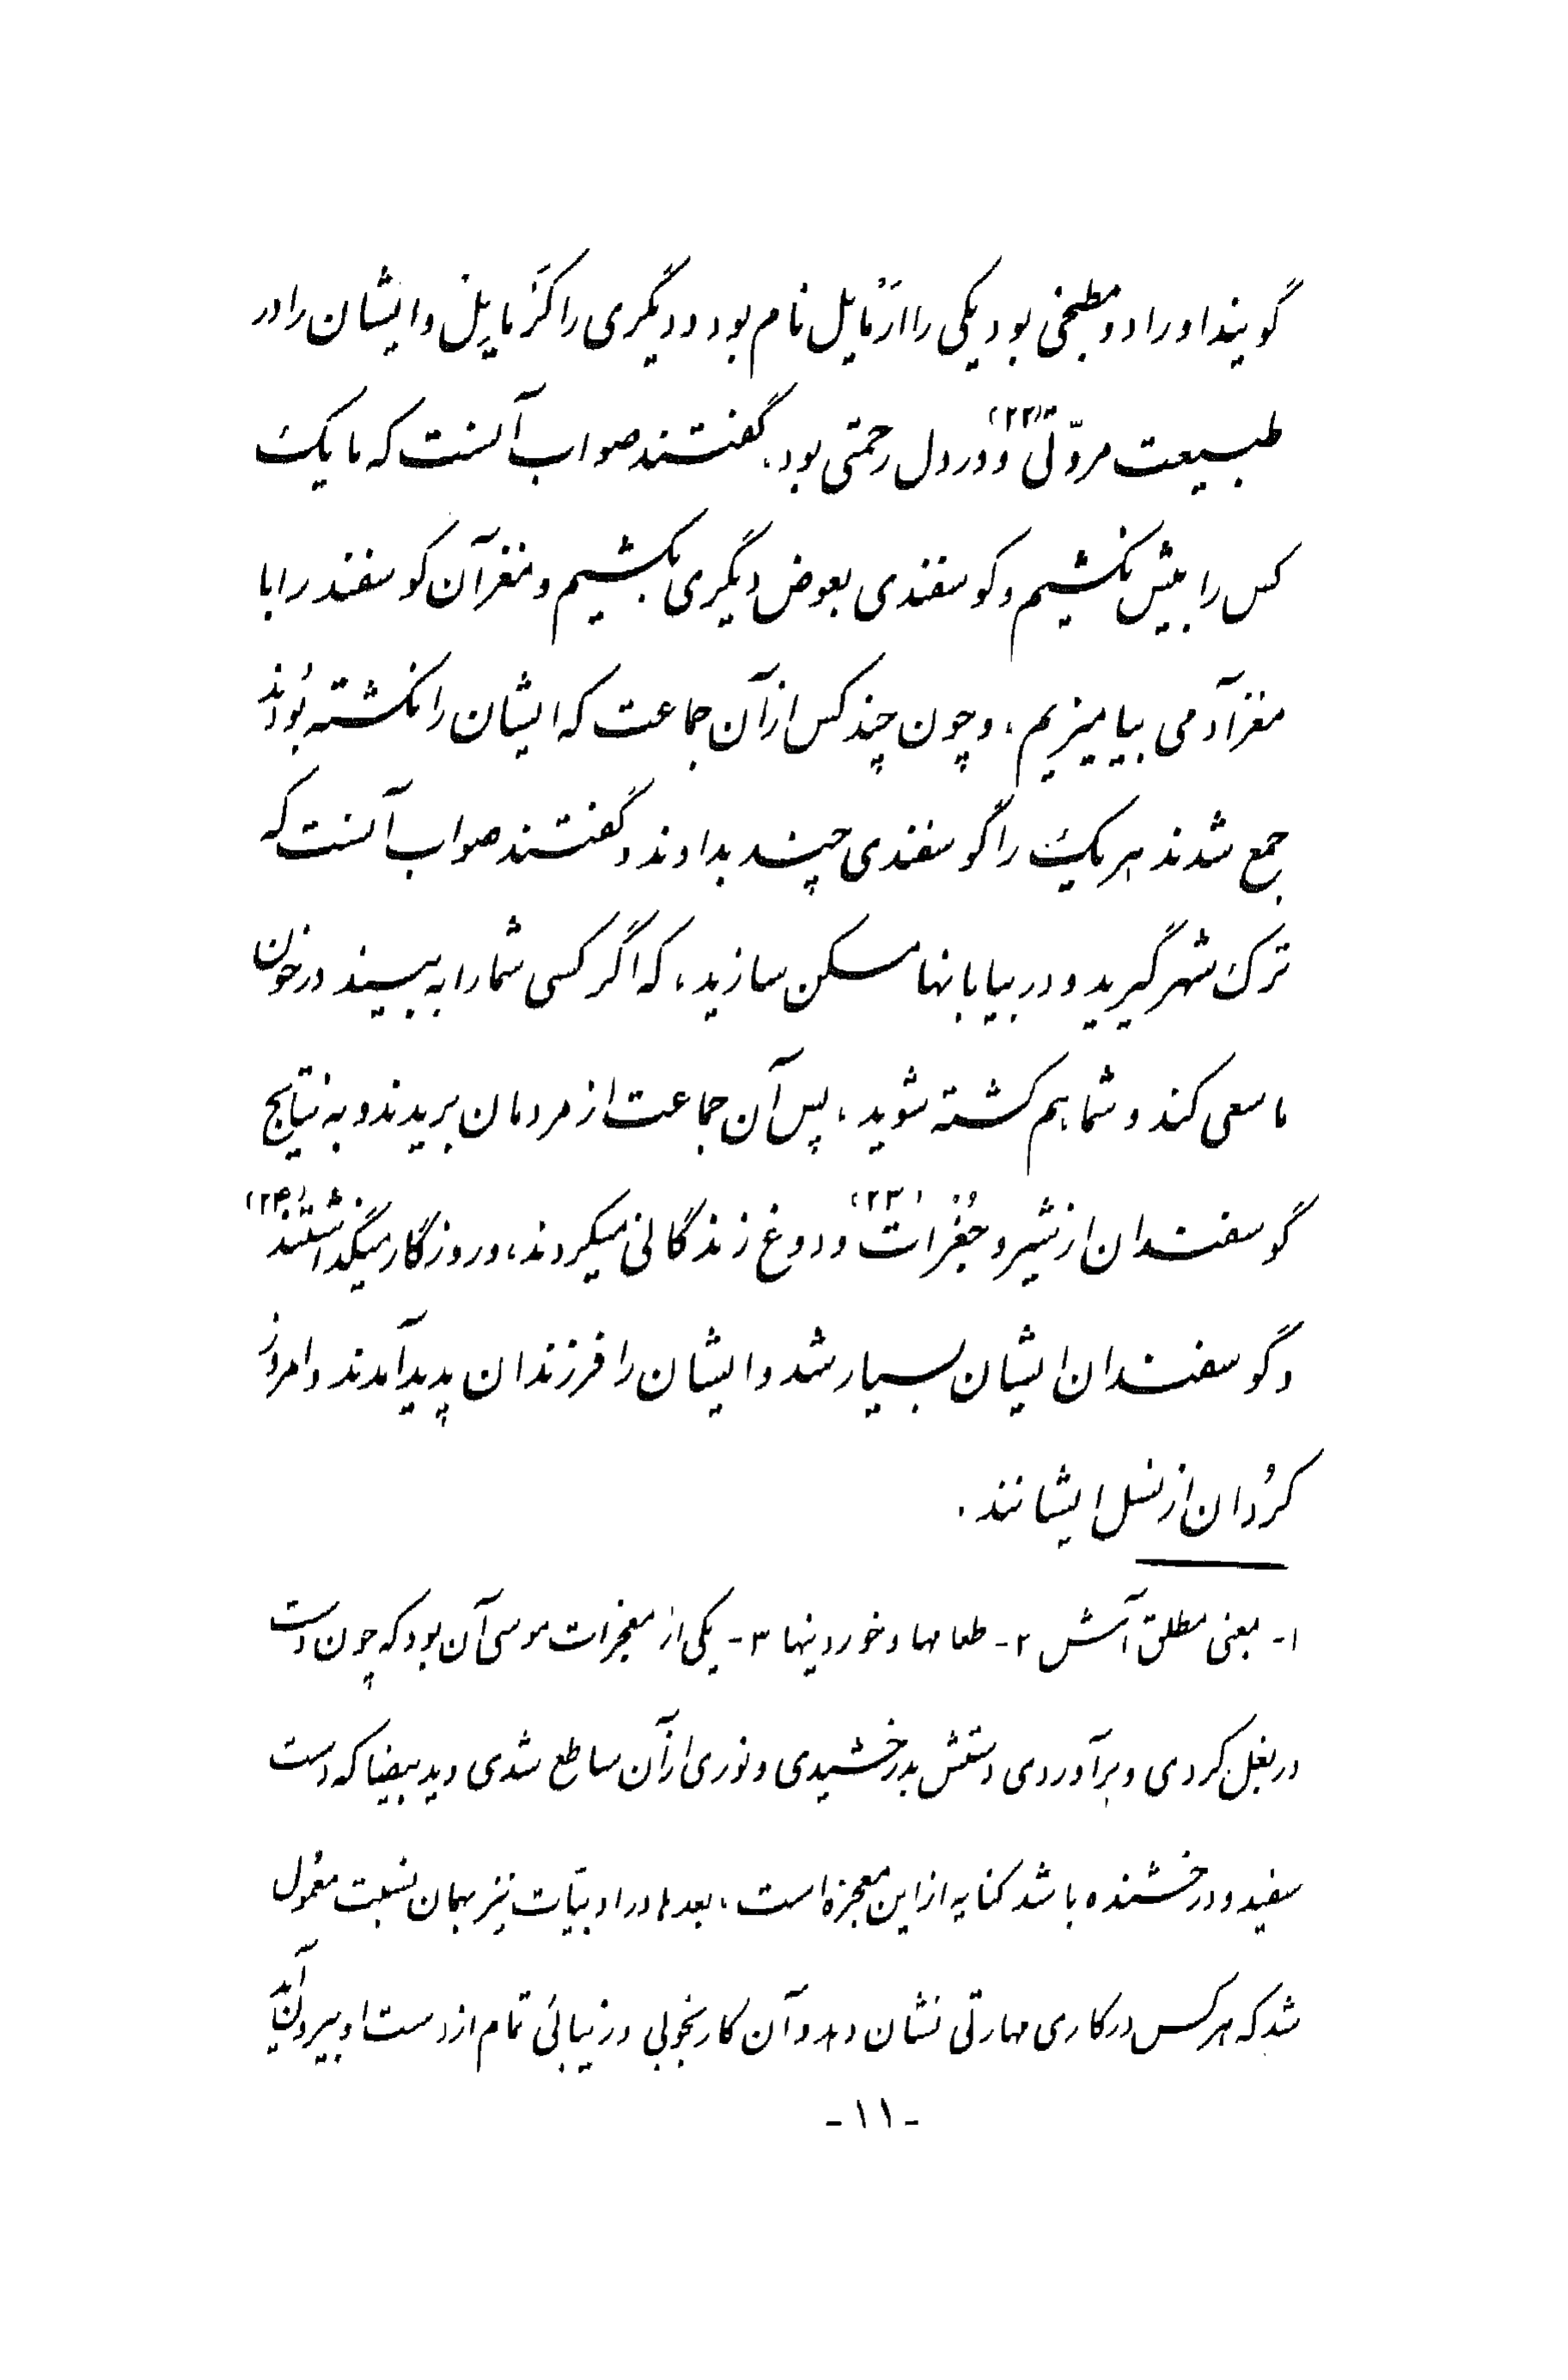 گویند او را دو مطبخی بود یکی را ارَمٰایل نام بود و دیگری را کَرمٰاییل و ایشان را در
طبیعت مروّتی (۲۲) و در دل رحمتی بود. گفتند صواب آنست که ما یک
کس را بیش نکشیم و گوسفندی بعوض دیگری بکشیم و مغز آن گوسفند را با
مغز آدمی بیامیزیم، و چون چند کس از آن جماعت که ایشان را نکشته بُودند
جمع شدند هر یک را گوسفندی چند بدادند و گفتند صواب آنست که
ترک شهر گیرید و در بیابانها مسکن سازید، که اگر کسی شما را به بیند در خون
ما سعی کند و شما هم کشته شوید، پس آن جماعت از مردمان بریدند و به نتایج
گوسفندان از شیر و جُغرات (۲۳) و دوغ زندگانی میکردند، و روزگار میگذاشتند (۲۴)
و گوسفندان ایشان بسیار شد و ایشان را فرزندان پدید آمدند و امروز
کُردان از نسل ایشانند.
۱- معنی مطلق آتش ۲- طعامها و خوردینها ۳- یکی از معجزات موسی آن بود که چون دست
در بغل کردی و برآوردی دستش بدرخشیدی و نوری از آن ساطع شدی و ید بیضا که دست
سفید و درخشنده باشد کنایه از این معجزه است، بعدها در ادبیّات نیز بهمان نسبت معمُول
شد که هر کس در کاری مهارتی نشان دهد و آن کار بخوبی و زیبائی تمام از دست او بیرون آید
-۱۱-